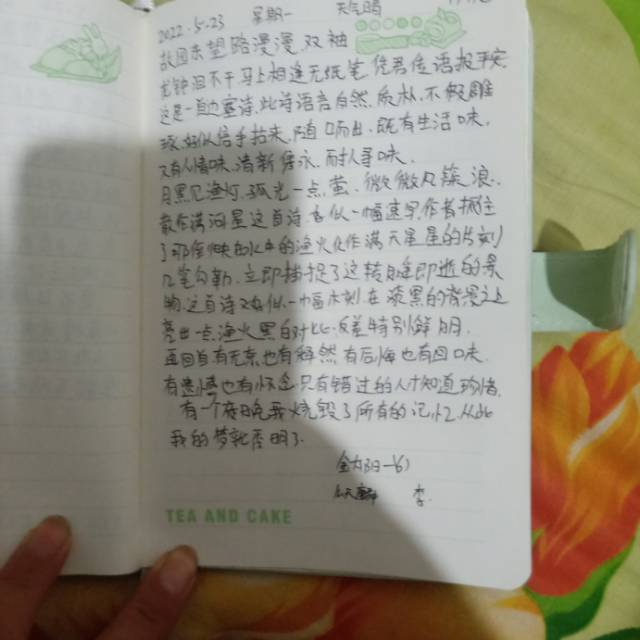 2022.5.23 星期一 天气晴
故园东望路漫漫双袖
龙钟泪不干马上相逢无纸笔凭君传语报平安
这是一首边塞诗,此诗语言自然,质朴,不假雕
琢,好似信手拈来,随口而出,既有生活味,
又有人情味,清新隽永,耐人寻味.
月黑见渔灯,孤光一点萤,微微风簇浪,
散作满河星这首诗好似一幅速写作者抓住
了那倒映在水中的渔火化作满天星星的片刻
几笔勾勒,立即捕捉了这转瞬即逝的景
物,这首诗又好似一幅木刻在漆黑的背景之上
亮出一点渔火黑白对比,反差特别鲜明.
再回首有无奈也有释然有后悔也有回味.
有遗憾也有怀念只有错过的人才知道珍惜,
有一个夜晚我烧毁了所有的记忆,从此
我的梦就透明了.
李
TEA AND CAKE